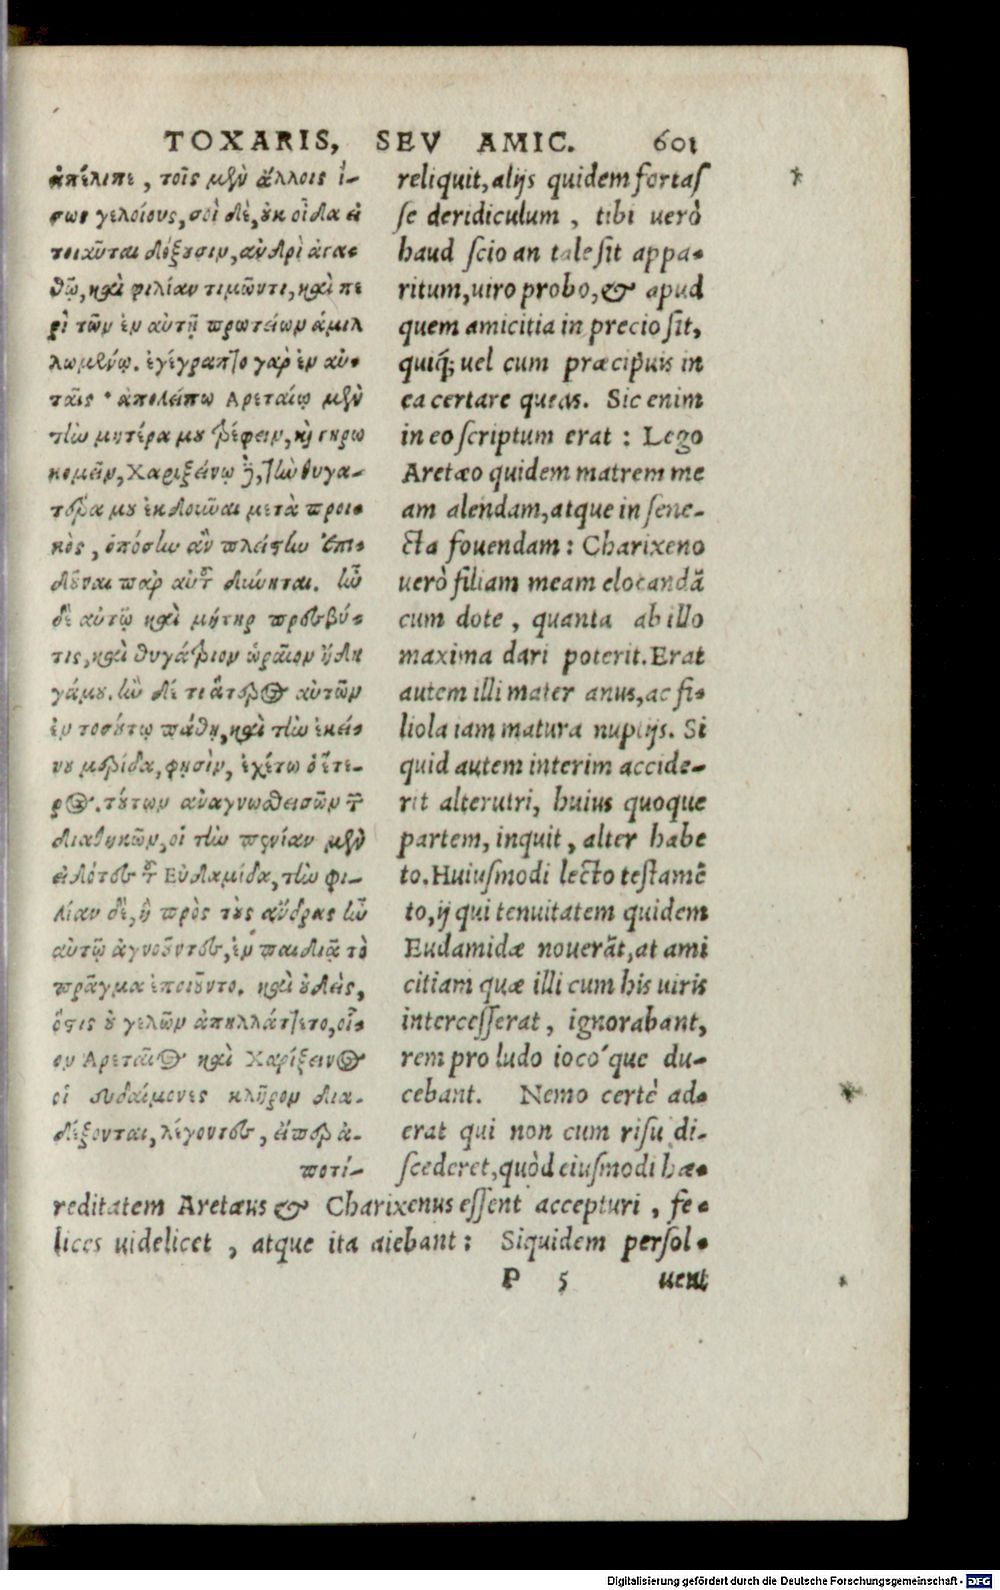 TOXARIS, SEV AMIC. 601
ἀπέλιπε, τοῖς μὲν ἄλλοις ἴ-
σως γελοίους, σοὶ δὲ, οὐκ οἶδα εἰ
τοιαῦται δόξουσιν, ἀνδρὶ ἀγα-
θῷ, καὶ φιλίαν τιμῶντι, καὶ πε
ρὶ τῶν ἐν αὐτῇ πρωτείων ἁμιλ
λωμένῳ. ἐγέγραπτο γὰρ ἐν αὐ-
ταῖς· ἀπολείπω Αρεταίῳ μὲν
τὴν μητέρα μου τρέφειν, καὶ γηρω
κομεῖν, Χαριξείνῳ δὲ, τὴν θυγα-
τέρα μου ἐκδοῦναι μετὰ προι-
κὸς, ὁπόσην ἂν πλείστην ἐπι-
δοῦναι παρ αὐτοῦ δύνηται. ἦν
δὲ αὐτῷ καὶ μήτηρ πρεσβύ-
τις, καὶ θυγάτριον ὡραῖον ἤδη
γάμου. ἢν δέ τι ἅτερος αὐτῶν
ἐν τοσούτῳ πάθῃ, καὶ τὴν ἐκεί-
νου μερίδα, φησὶν, ἐχέτω ὁ ἕτε-
ρος. τούτων ἀναγνωσθεισῶν τῶν
διαθηκῶν, οἱ τὴν πενίαν μὲν
εἰδότες τοῦ Εὐδαμίδα, τὴν φι-
λίαν δὲ, ἣ πρὸς τοὺς ἄνδρας ἦν
αὐτῷ ἀγνοοῦντες, ἐν παιδιᾷ τὸ
πρᾶγμα ἐποιοῦντο. καὶ οὐδεὶς,
ὅστις οὐ γελῶν ἀπηλλάττετο, οἷ-
ον Αρεταῖος καὶ Χαρίξεινος
οἱ εὐδαίμονες κλῆρον δια-
δέξονται, λέγοντες, εἴπερ ἀ-
ποτί-
reliquit, alijs quidem fortas
se deridiculum, tibi uerò
haud scio an tale sit appa-
ritum, uiro probo, & apud
quem amicitia in precio sit,
quiq́; uel cum præcipuis in
ea certare queas. Sic enim
in eo scriptum erat : Lego
Aretæo quidem matrem me
am alendam, atque in sene-
cta fouendam : Charixeno
uerò filiam meam elocandã
cum dote, quanta ab illo
maxima dari poterit. Erat
autem illi mater anus, ac fi-
liola iam matura nuptijs. Si
quid autem interim accide-
rit alterutri, huius quoque
partem, inquit, alter habe
to. Huiusmodi lecto testamẽ
to, ij qui tenuitatem quidem
Eudamidæ nouerãt, at ami
citiam quæ illi cum his uiris
intercesserat, ignorabant,
rem pro ludo ioco´que du-
cebant. Nemo certè ad-
erat qui non cum risu di-
scederet, quòd eiusmodi hæ-
reditatem Aretæus & Charixenus essent accepturi, fe-
lices uidelicet, atque ita aiebant : Siquidem persol-
P 5 uent
Digitalisierung gefördert durch die Deutsche Forschungsgemeinschaft - DFG